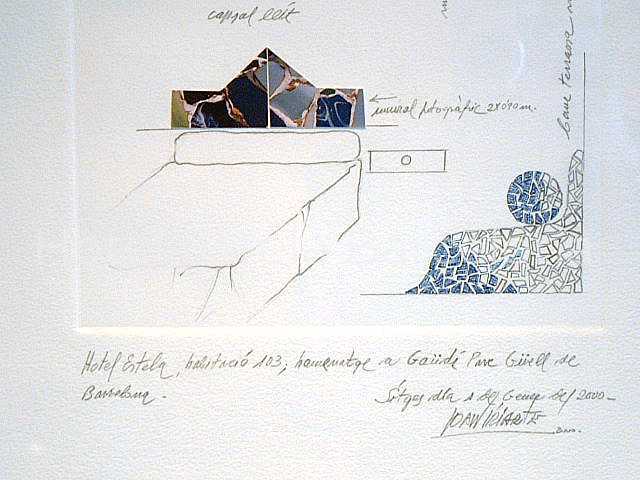 capsal llit
mural fotogràfic 2x0'90 m.
banc terrassa
Hotel Estela, habitació 103, homenatge a Gaüdí Parc Güell de
Barcelona.
Sitges dia 1 del Gener del 2000-
JOAN IRIARTE
2000.